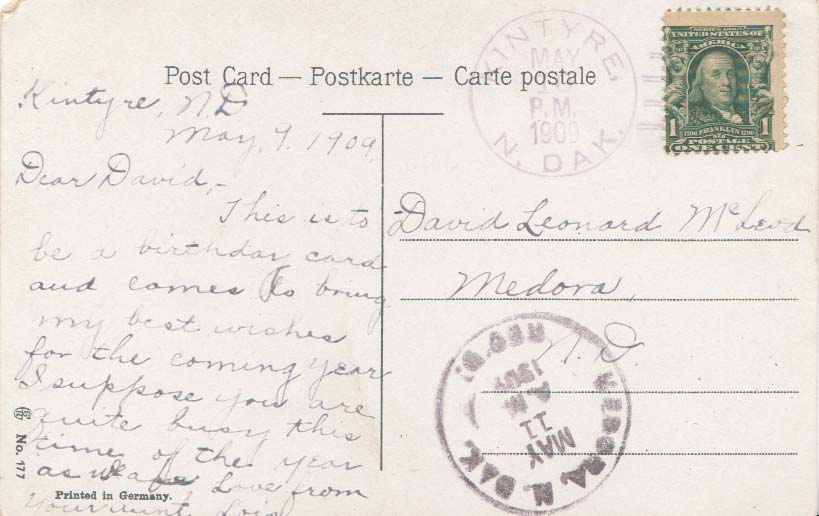 Post Card — Postkarte — Carte postale
KINTYRE,
MAY
P.M.
1909
N. DAK.
SERIES 1902
UNITED STATES OF
AMERICA
1 1706 FRANKLIN 1790 1
POSTAGE
ONE CENT
Kintyre, N.D.
May, 9, 1909
Dear David,-
This is to
be a birthday card
and comes to bring
my best wishes
for the coming year
I suppose you are
quite busy this
time of the year
as we are Love from
Your aunt, Lois
David Leonard McLeod
Medora,
N. D.
MEDORA, N. DAK.
REC'D.
MAY
11
A.M.
1909
No. 177
Printed in Germany.